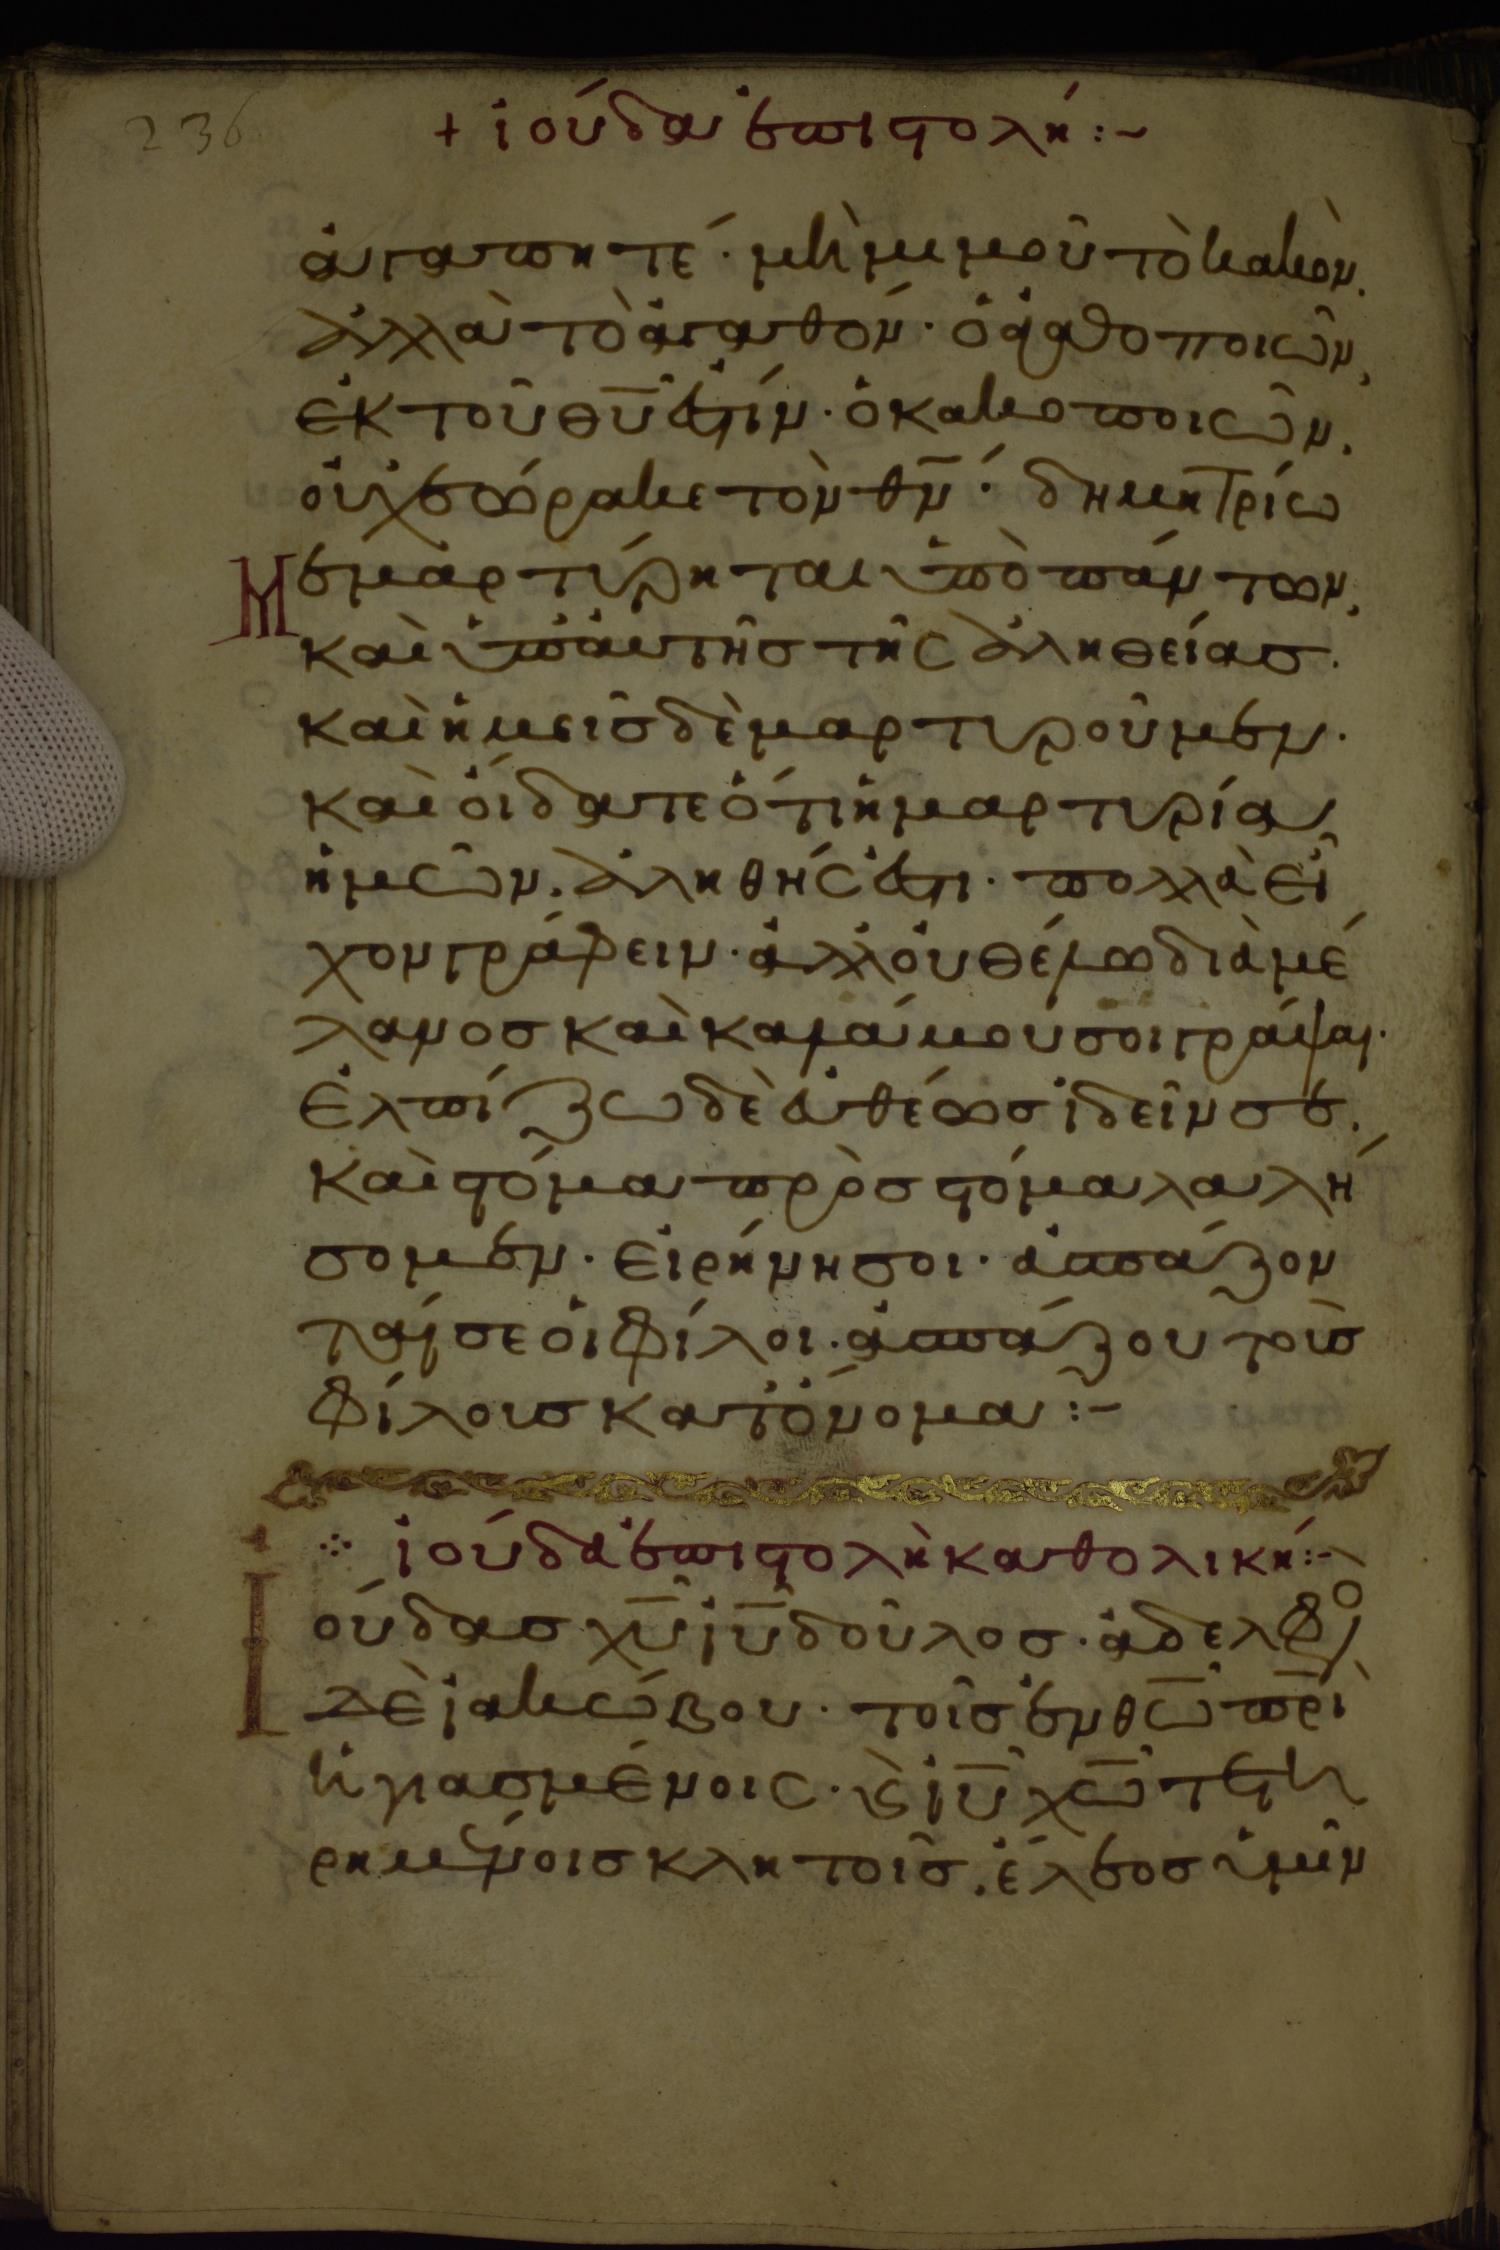 236
+ ἰούδα ἐπιστολή :~
ἀγαπητέ· μὴ μιμοῦ τὸ κακὸν.
ἀλλὰ τὸ ἀγαθόν· ὁ ἀγαθοποιῶν,
ἐκ τοῦ θῡ ἐστίν· ὁ κακοποιῶν.
οὐχ ἑώρακε τὸν θν̄· δημητρίω
Μεμαρτύρηται ὑπὸ πάντων,
καὶ ὑπ' αὐτῆς τῆς ἀληθείας.
καὶ ἡμεῖς δὲ μαρτυροῦμεν·
καὶ οἴδατε ὅτι ἡ μαρτυρία
ἡμῶν. ἀληθής ἐστι· πολλὰ εἶ
χον γράφειν· ἀλλ' οὐ θέλω διὰ μέ
λανος καὶ καλάμου σοι γράψαι·
ἐλπίζω δὲ εὐθέως ἰδεῖν σε.
καὶ στόμα πρὸς στόμα λαλή
σομεν· εἰρήνη σοι· ἀσπάζον
ταί σε οἱ φίλοι· ἀσπάζου τοὺς
φίλους κατ' ὄνομα :~
ἰούδα ἐπιστολὴ καθολική :~
Ιούδας χῡ ἰῡ δοῦλος· ἀδελφο
δὲ ἰακώβου· τοῖς ἐν θω̄ πρ̄ὶ
ἡγιασμένοις· κὶ ἰῡ χω̄ τετη
ρημένοις κλητοῖς. ἔλεος ὑμῖν